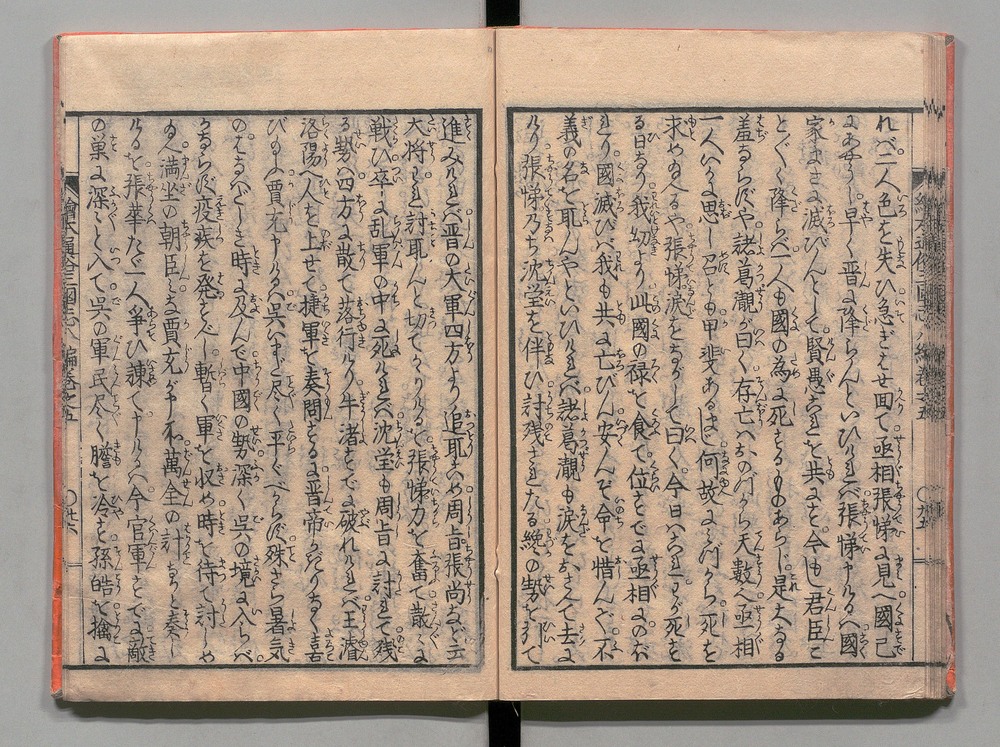 れバ二人色を失ひ急ぎはせ囬て丞相張悌に見へ國己
にあやうし早く晋に降らんといひけれバ張悌申けるハ國
家まさに滅びんとして賢愚これを共にす今もし君臣
とく降らバ一人も國の為に死するものあらじ是大なる
羞ならずや諸葛瀾が曰く存亡ハおのづから天數ハ丞相
一人いかに思し召とも甲斐あるまじ何故にみづから死を
求め給ふるや張悌涙をながして曰く今日ハこれわが死す
る日なり我幼より此國の禄を食て位すでに丞相にのぼ
れり國滅びバ我も共に亡びん安んぞ命を惜んで不
義の名を耻んやといひけれバ諸葛瀾も涙をおさへて去に
けり張悌乃ち沈瑩を伴ひ討残されたる纔の勢をひいて
進みけれバ晋の大軍四方より追取こめ周旨張尚など云
大将これを討取んと切てかゝりけるを張悌力を奮て散々に
戦ひ卒に乱軍の中に死けれバ沈瑩も周旨に討れて残
る勢ハ四方に散て落行けり牛渚すでに破れけれバ王濬
洛陽へ人を上せて捷軍を奏問するに晋帝かぎりなく喜
び給ふに賈充申けるハ呉いまだ尽く平ぐべからず殊さら暑気
のはなはだしき時に及んで中國の勢深く呉の境に入らバ
かならず疫疾を発すべし暫く軍を収め時を待て討しめ
給へ満坐の朝臣ミな賈充が申所萬全の計なりと奏し
けるを張華たゞ一人爭ひ諫て申けるハ今官軍すでに敵
の巣に深く入て呉の軍民尽く膽を冷し孫皓を擒に